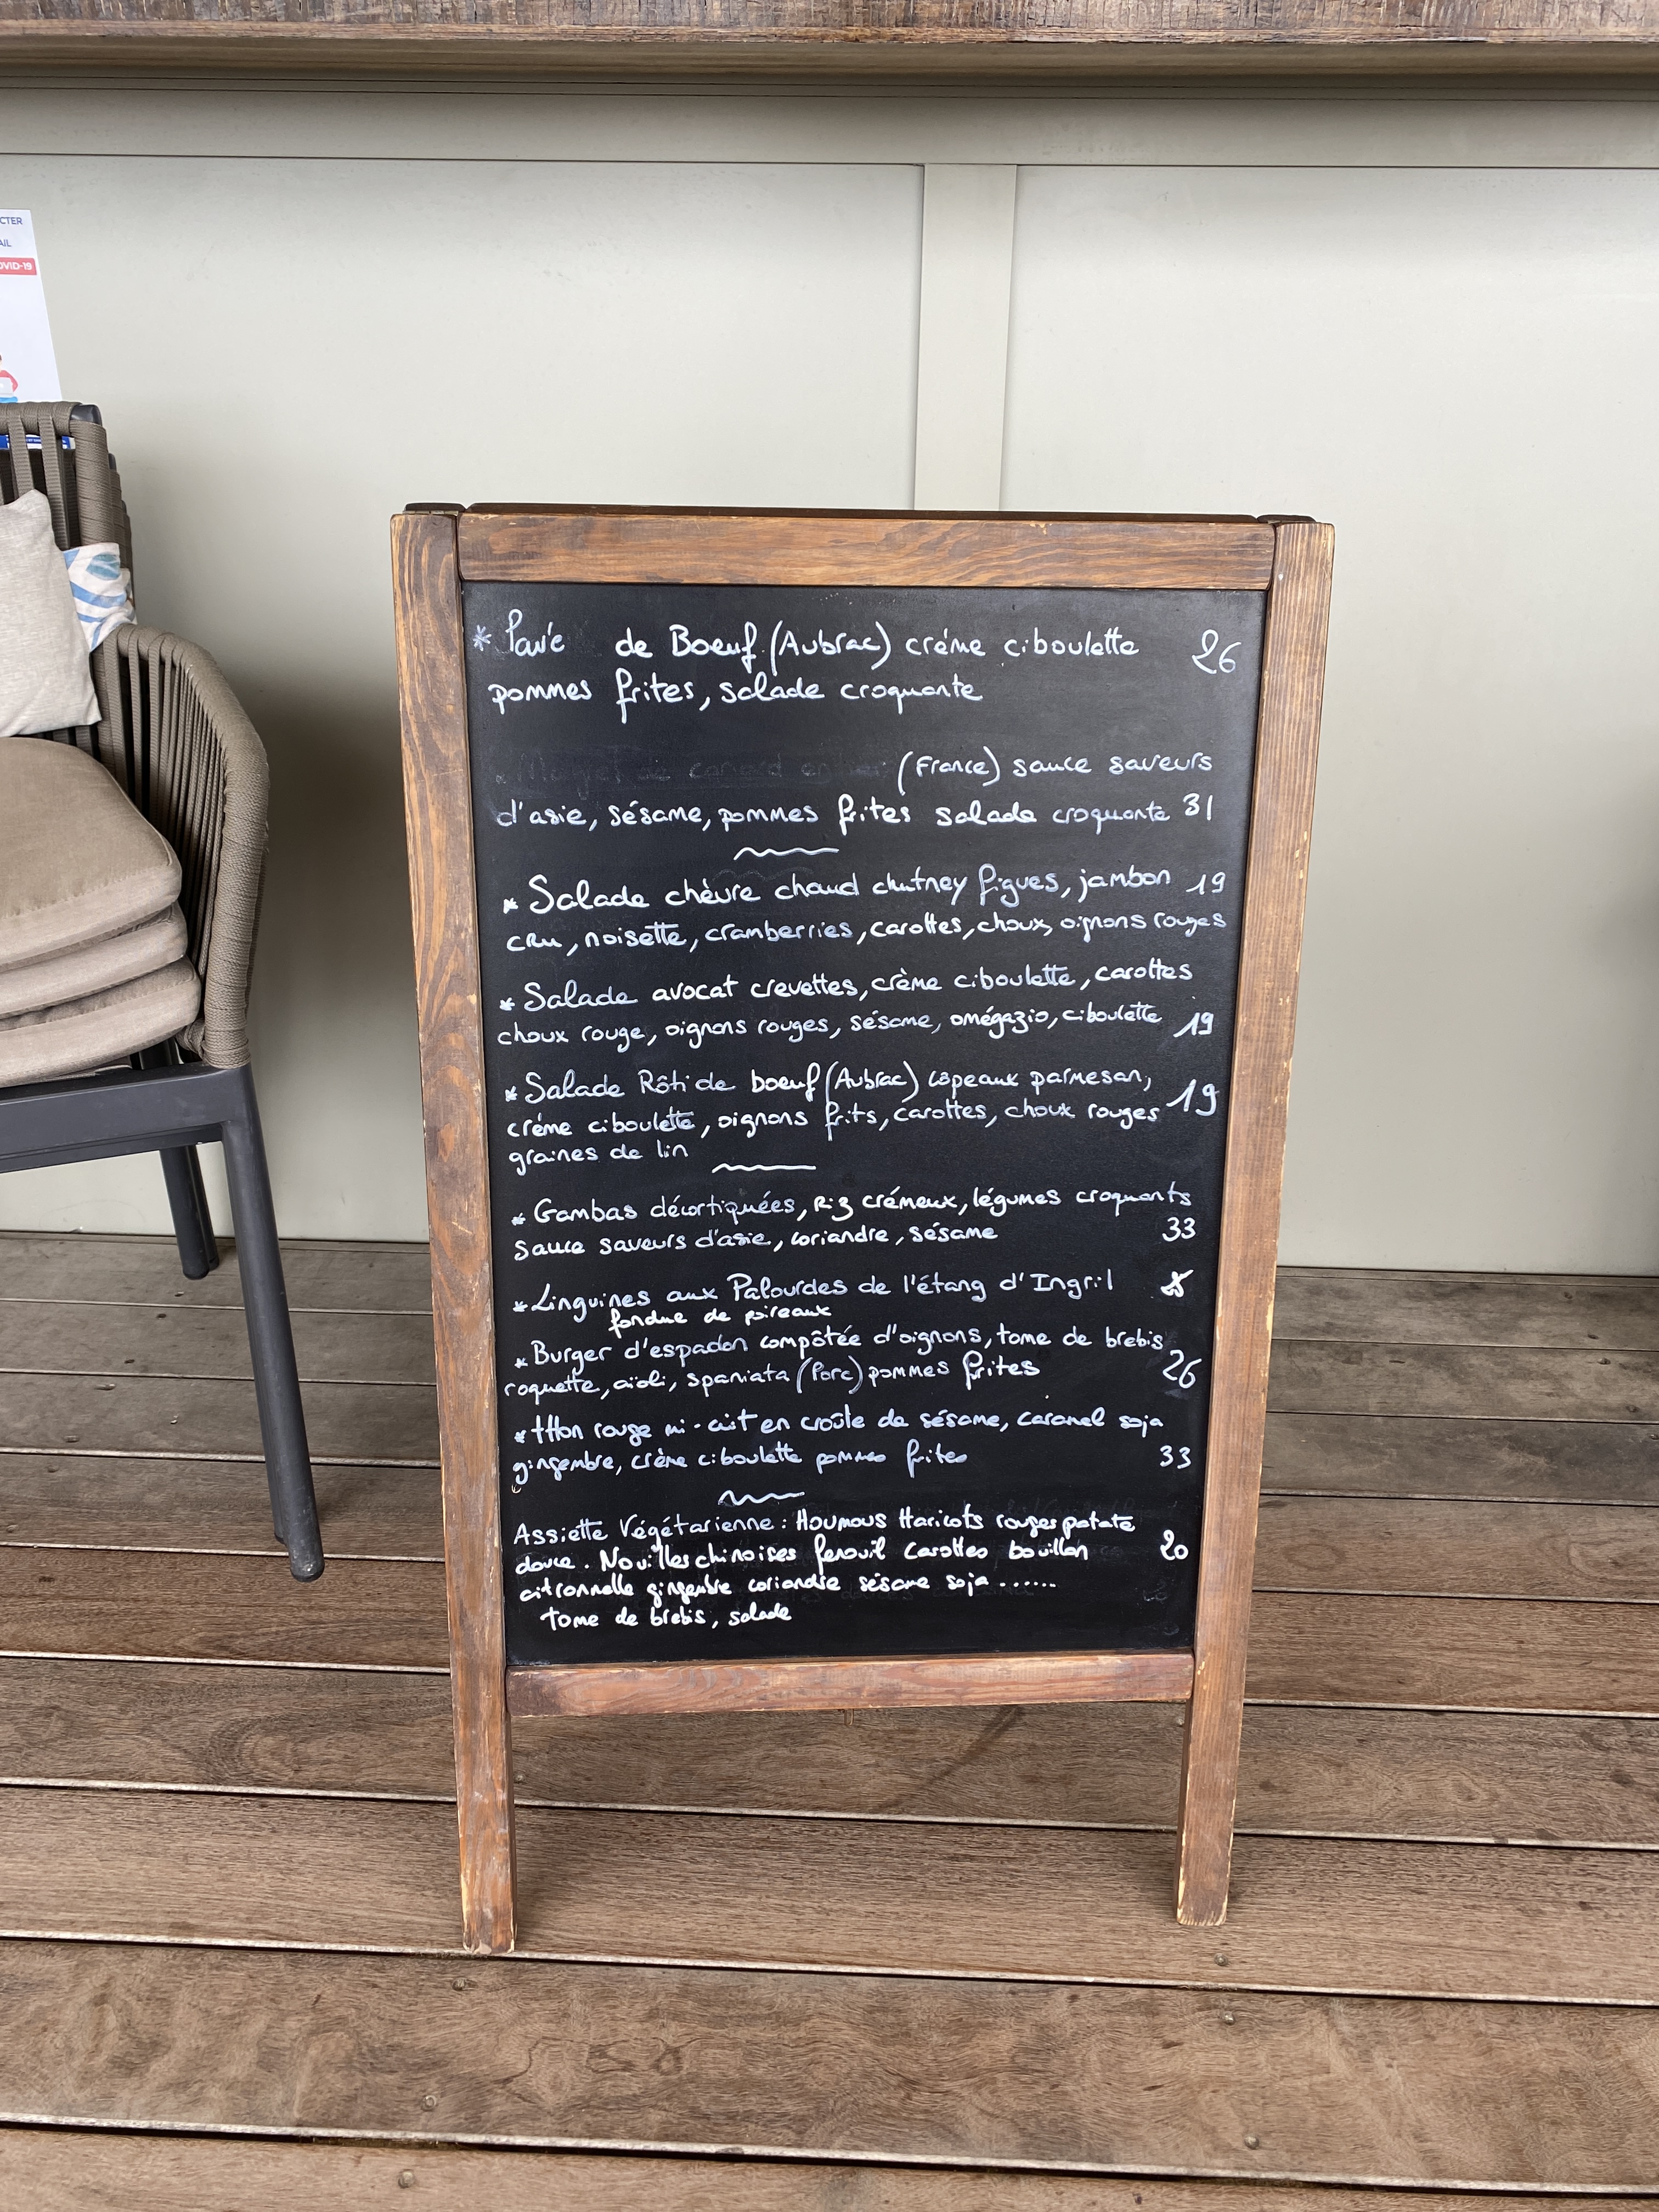 CTER
AIL
OVID-19
* Pavé de Boeuf (Aubrac) crème ciboulette 26
pommes frites, salade croquante
Magret de canard entier (France) sauce saveurs
d'asie, sésame, pommes frites salade croquante 31
* Salade chèvre chaud chutney figues, jambon 19
cru, noisette, cramberries, carottes, choux, oignons rouges
* Salade avocat crevettes, crème ciboulette, carottes
choux rouge, oignons rouges, sésame, omégazio, ciboulette 19
* Salade Rôti de boeuf (Aubrac) copeaux parmesan, 19
crème ciboulette, oignons frits, carottes, choux rouges
graines de lin
* Gambas décortiquées, Riz crémeux, légumes croquants
sauce saveurs d'asie, coriandre, sésame 33
* Linguines aux Palourdes de l'étang d'Ingril
fondue de poireaux
* Burger d'espadon compôtée d'oignons, tome de brebis
roquette, aïoli, spaniata (Porc) pommes frites 26
* tHon rouge mi-cuit en croûte de sésame, caramel soja
gingembre, crème ciboulette pommes frites 33
Assiette Végétarienne : Houmous Haricots rouges patate
douce. Nouilles chinoises fenouil carottes bouillon 20
citronnelle gingembre coriandre sésame soja .......
tome de brebis, salade